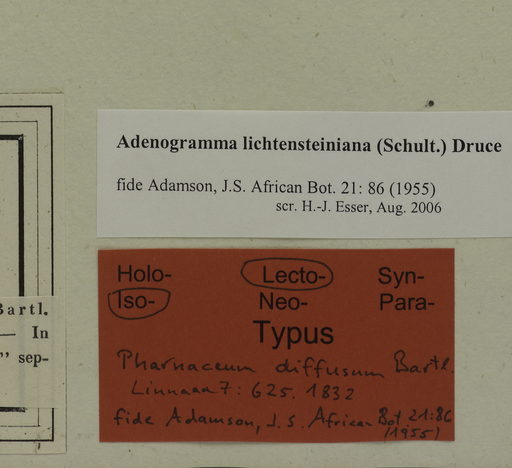 Adenogramma lichtensteiniana (Schult.) Druce
fide Adamson, J.S. African Bot. 21: 86 (1955)
scr. H.-J. Esser, Aug. 2006
Holo- Lecto- Syn-
Iso- Neo- Para-
Typus
Pharnaceum diffusum Bartl.
Linnaea 7: 625. 1832
fide Adamson, J. S. African Bot 21:86
(1955)
Bartl.
— In
” sep-